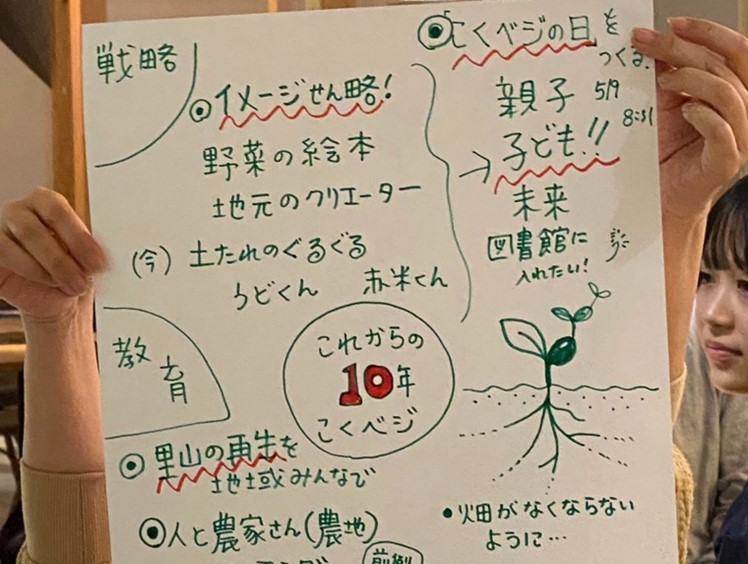 戦略
◉イメージせん略!
野菜の絵本
地元のクリエーター
(今) 土だれのぐるぐる
うどくん 赤米くん
◉こくベジの日を
つくる.
親子 5/9
8=31
→子ども!!
未来
図書館に
入れたい!
教育
これからの
10年
こくベジ
◉里山の再生を
地域みんなで
◉人と農家さん(農地)
前例
・畑がなくならない
ように…